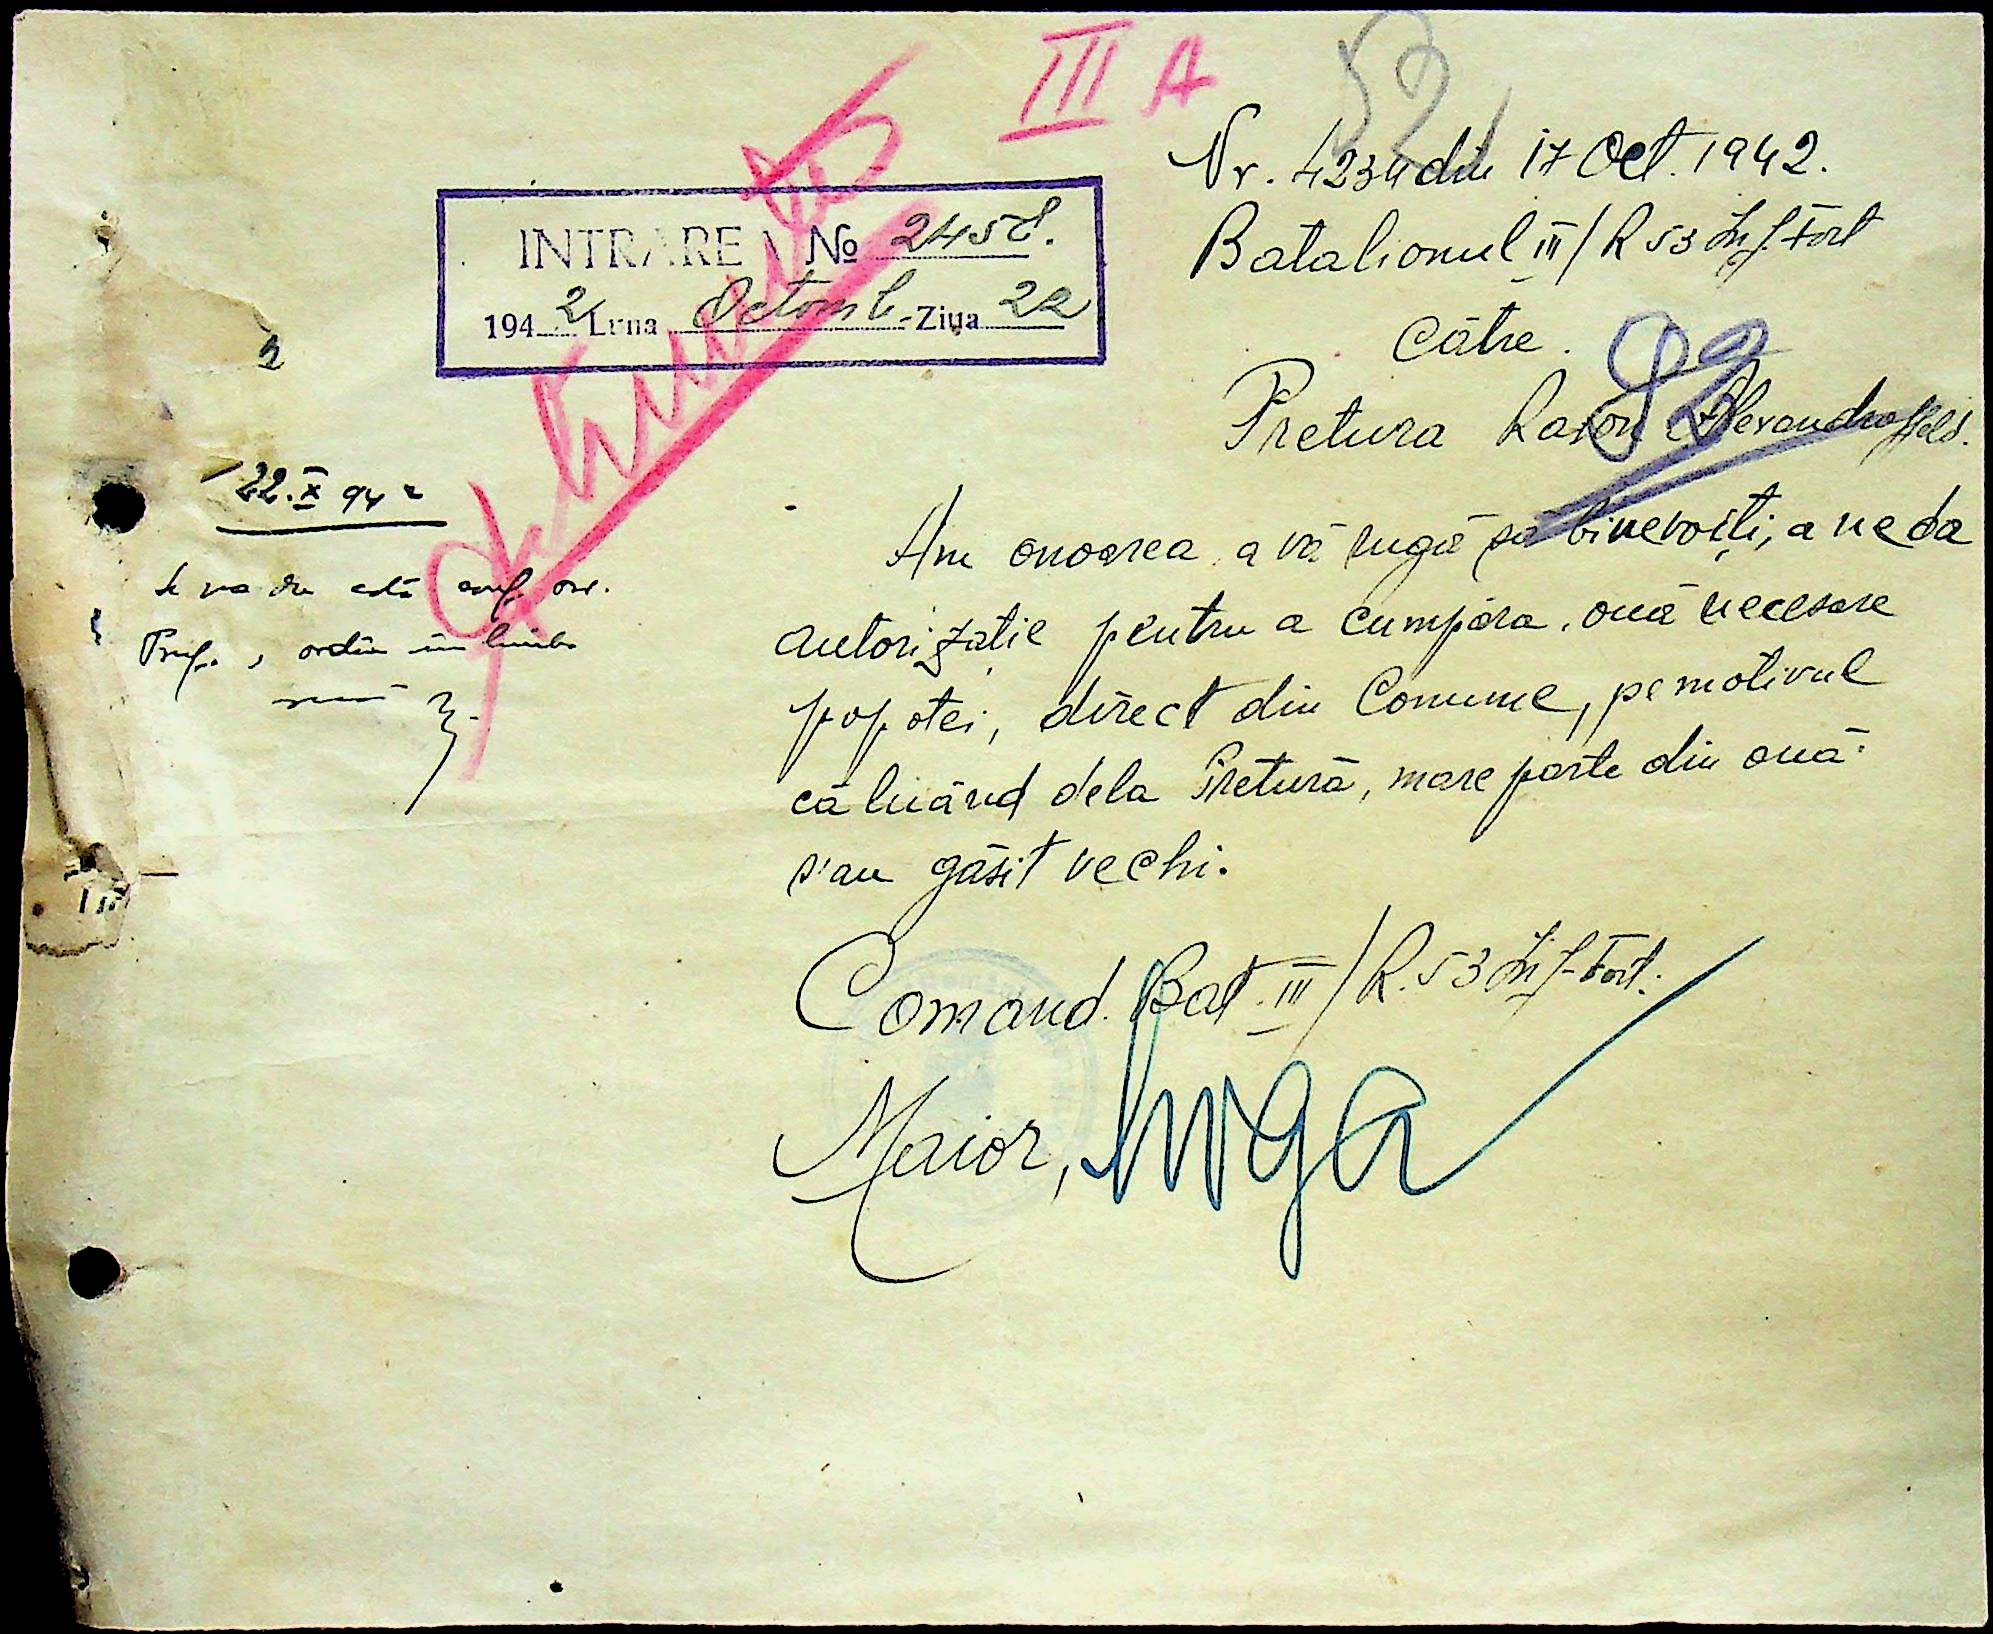 III A
52
Nr. 4234 din 17 Oct. 1942.
Batalionul III/R 53 Inf. Fort
INTRARE No 2458.
1942 Luna Octomb - Ziua 22
Către.
89
Pretura Raion Alexandrosfeld.
22.X 942
Am onoarea a vă rugă să binevoiți, a ne da
autorizație pentru a cumpăra, ouă necesare
popotei, direct din Comune, pe motivul
că luând dela Pretură, mare parte din ouă
s'au găsit vechi.
Se va da
ordin în limba
Comand. Bat. III/R. 53 Inf. Fort.
Maior,